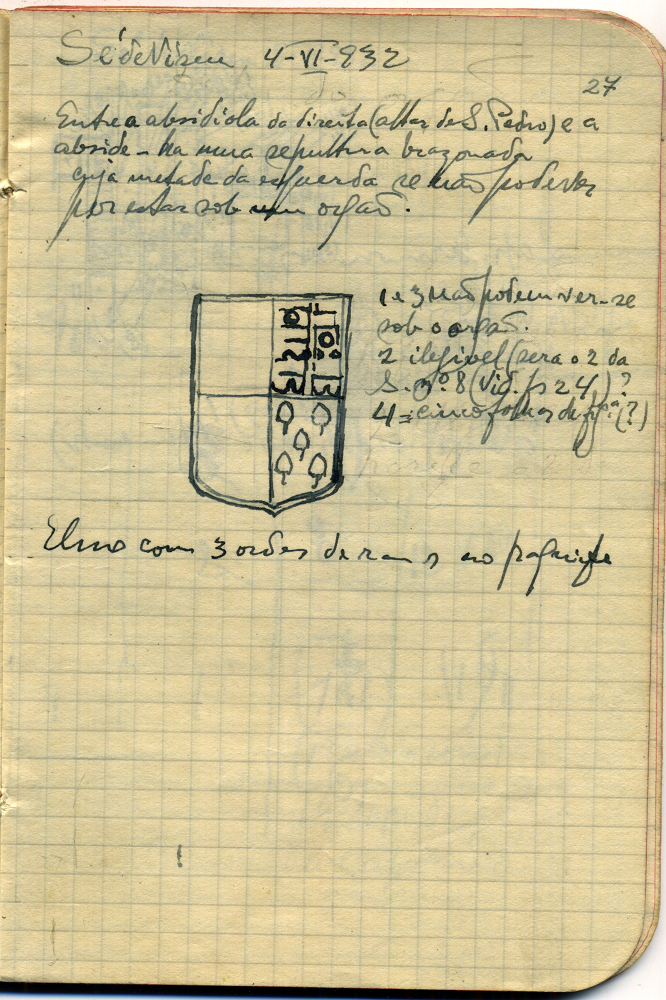 Sé de Viseu 4-VI-932
27
Entre a absidiola da direita (altar de S. Pedro) e a
abside - ha uma sepultura brazonada
cuja metade da esquerda se não pode ver
por estar sob um orgão.
1 e 3 não podem ver-se
sob o orgão.
2 ilegivel (sera o 2 da
S. nº 8 (Vid. p. 24)?
4 = cinco folhas de (?)
Elmo com 3 ordes de no paquife